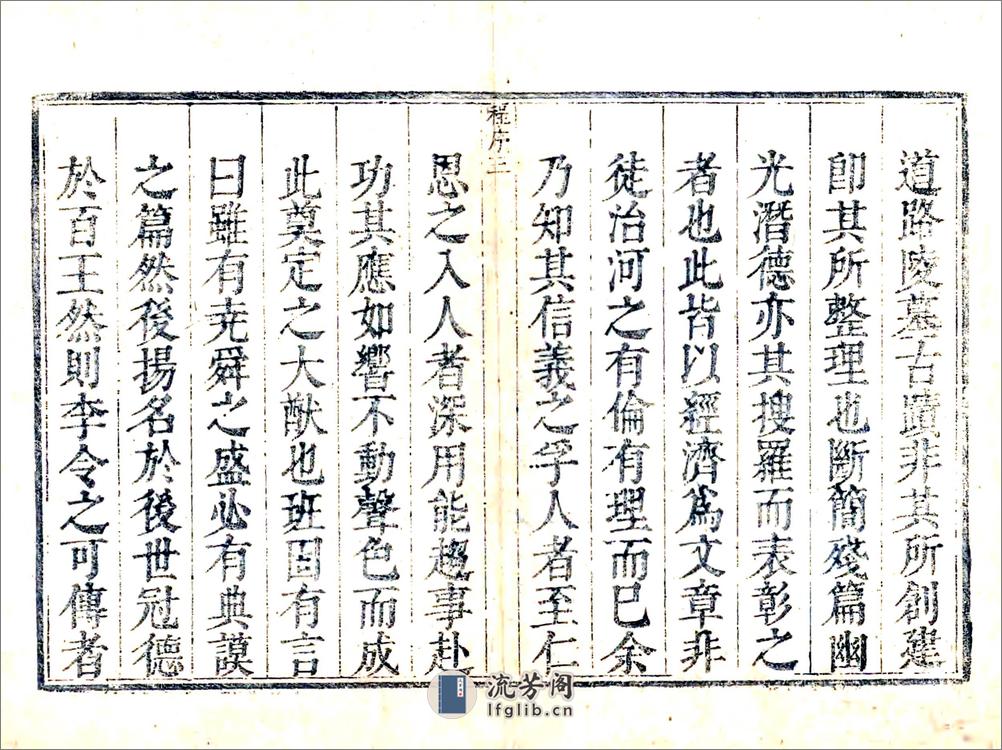 道路陵墓古蹟非其所創建
卽其所整理也斷簡殘篇幽
光潛德亦其搜羅而表彰之
者也此皆以經濟爲文章非
徒治河之有倫有理而已余
乃知其信義之孚人者至仁
程序三
恩之入人者深用能趨事赴
功其應如響不動聲色而成
此奠定之大猷也班固有言
曰雖有堯舜之盛必有典謨
之篇然後揚名於後世冠德
於百王然則李令之可傳者
流芳阁
lfglib.cn